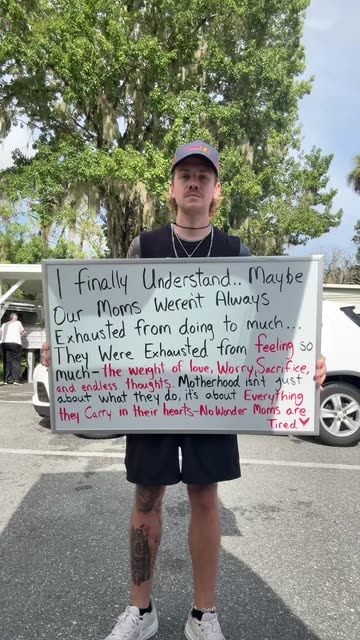 I finally Understand.. Maybe
Our Moms Weren't Always
Exhausted from doing to much...
They Were Exhausted from feeling so
much- the weight of love, Worry, Sacrifice,
and endless thoughts. Motherhood isn't just
about what they do, it's about Everything
they Carry in their hearts-No Wonder Moms are
Tired